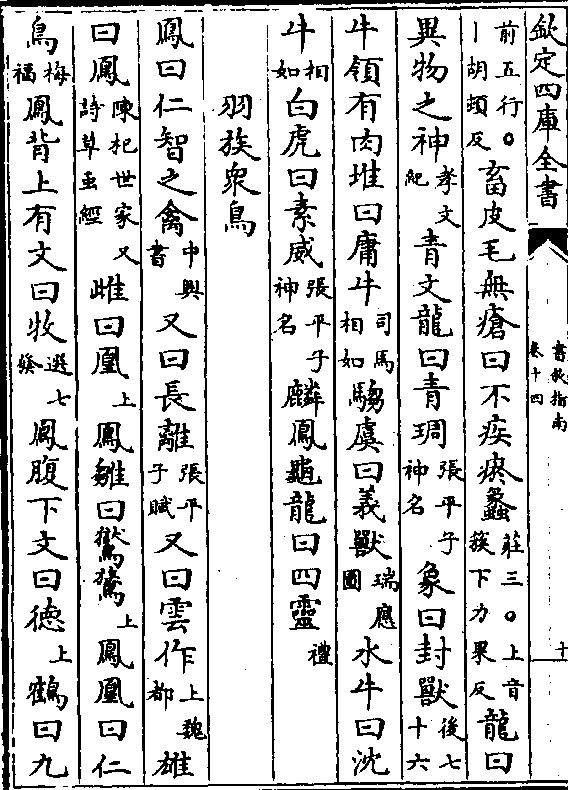 欽定四庫全書
書叙指南
卷十四
十
前五行〇丨胡頓反畜皮毛無瘡曰不疾瘯蠡莊三〇上音蔟下力果反龍曰
異物之神孝文紀青文龍曰青琱張平子神名象曰封獸後七十六
牛領有肉堆曰庸牛司馬相如騶虞曰義獸瑞應圖水牛曰沈
牛相如白虎曰素威張平子神名麟鳳龜龍曰四靈禮
羽族衆鳥
鳳曰仁智之禽中興書又曰長離張平子賦又曰雲作上魏都雄
曰鳳陳杞世家又詩草虫經雌曰凰上鳳雛曰鸑鷟上鳳凰曰仁
鳥梅福鳳背上有文曰牧選七發鳳腹下文曰德上鶴曰九